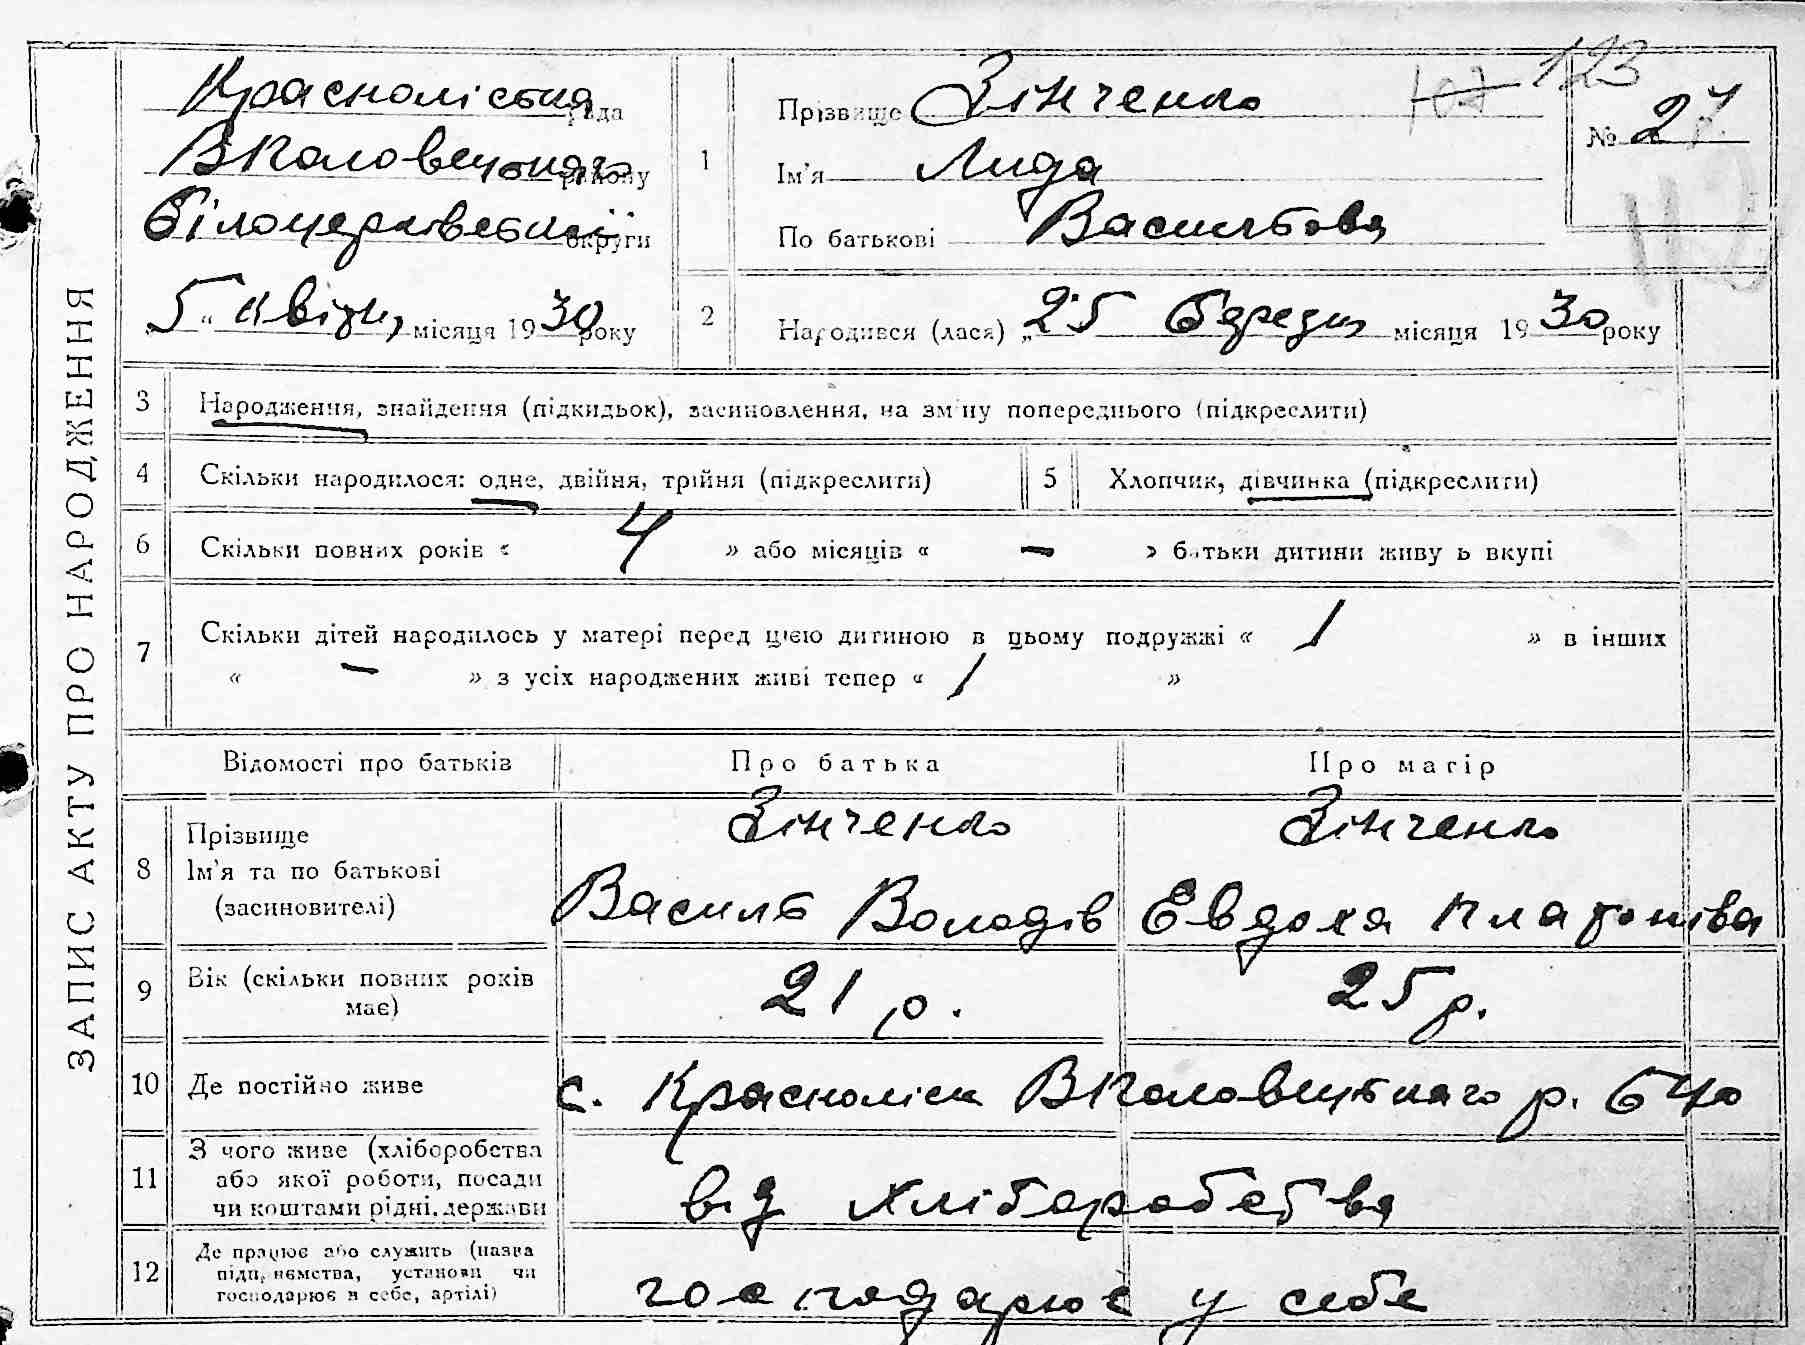 ЗАПИС АКТУ ПРО НАРОДЖЕННЯ
Красноліська рада
Вполовецького району
Білоцерківської округи
"5" квітн, місяця 1930 року
1
Прізвище Зінченко
Ім'я Лида
По батькові Васильова
123
107
№ 27
2
Народився (лася) „25 березн місяця 1930 року
3 Народження, знайдення (підкидьок), засиновлення, на зміну попереднього (підкреслити)
4 Скільки народилося: одне, двійня, трійня (підкреслити)
5 Хлопчик, дівчинка (підкреслити)
6 Скільки повних років « 4 » або місяців « — » батьки дитини живуть вкупі
7 Скільки дітей народилось у матері перед цією дитиною в цьому подружжі « 1 » в інших
« — » з усіх народжених живі тепер « 1 »
Відомості про батьків Про батька Про матір
8 Прізвище Ім'я та по батькові (засиновителі)
Зінченко Зінченко
Василь Володів Евдокя Платонова
9 Вік (скільки повних років має) 21 р. 25 р.
10 Де постійно живе с. Красноліси Вполовецького р. БЦо
11 З чого живе (хліборобства або якої роботи, посади чи коштами рідні, держави
від хліборобства
12 Де працює або служить (назва підприємства, установи чи господарює в себе, артілі)
господарює у себе